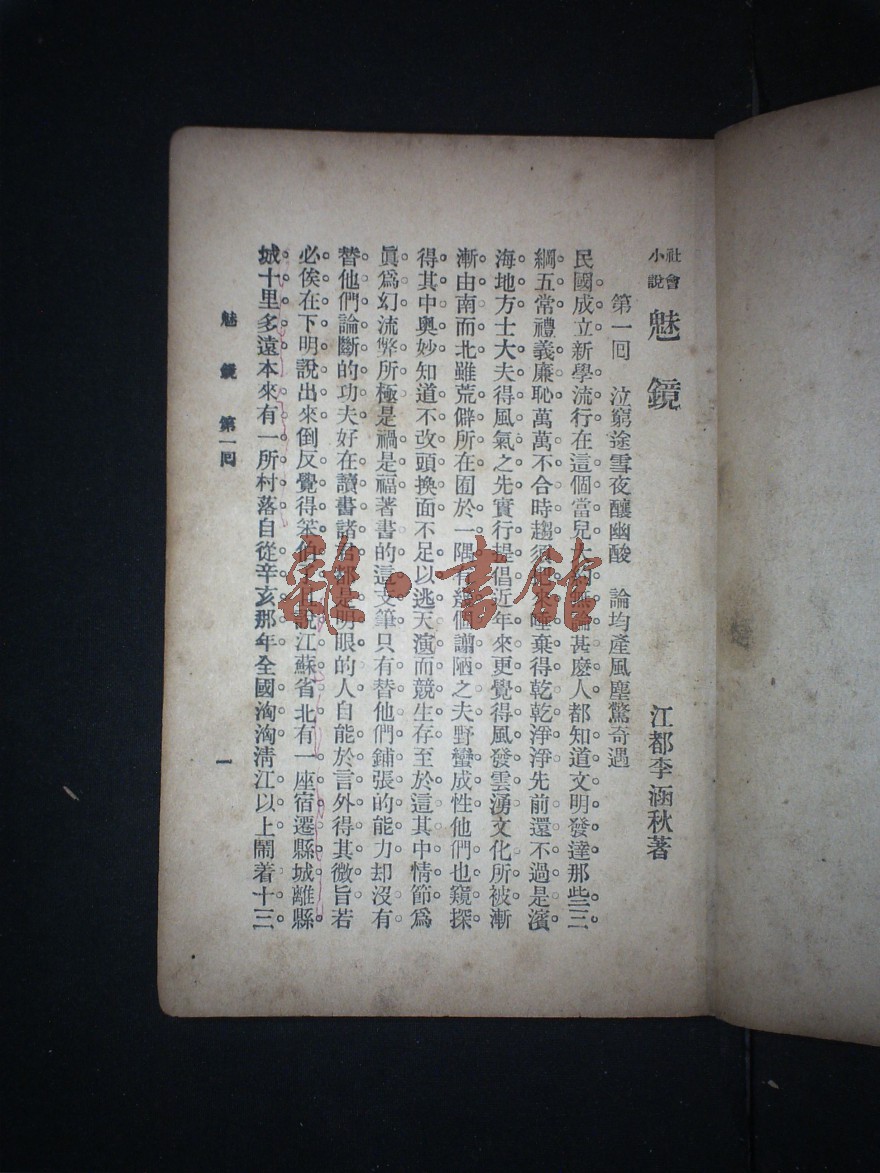 社會小說 魅鏡 江都李涵秋著
第一回 泣窮途雪夜釀幽酸 論均產風塵驚奇遇
民國成立新學流行在這個當兒 甚麼人都知道文明發達那些三
綱五常禮義廉恥萬萬不合時趨須 唾棄得乾乾淨淨先前還不過是濱
海地方士大夫得風氣之先實行提倡近年來更覺得風發雲湧文化所被漸
漸由南而北雖荒僻所在囿於一隅有幾個譾陋之夫野蠻成性他們也窺探
得其中奧妙知道不改頭換面不足以逃天演而競生存至於這其中情節爲
眞爲幻流弊所極是禍是福著書的這支筆只有替他們鋪張的能力却沒有
替他們論斷的功夫好在讀書諸君都是明眼的人自能於言外得其微旨若
必俟在下明說出來倒反覺得笨伯了且說江蘇省北有一座宿遷縣城離縣
城十里多遠本來有一所村落自從辛亥那年全國洶洶淸江以上鬧着十三
魅鏡 第一回 一
雜·書館